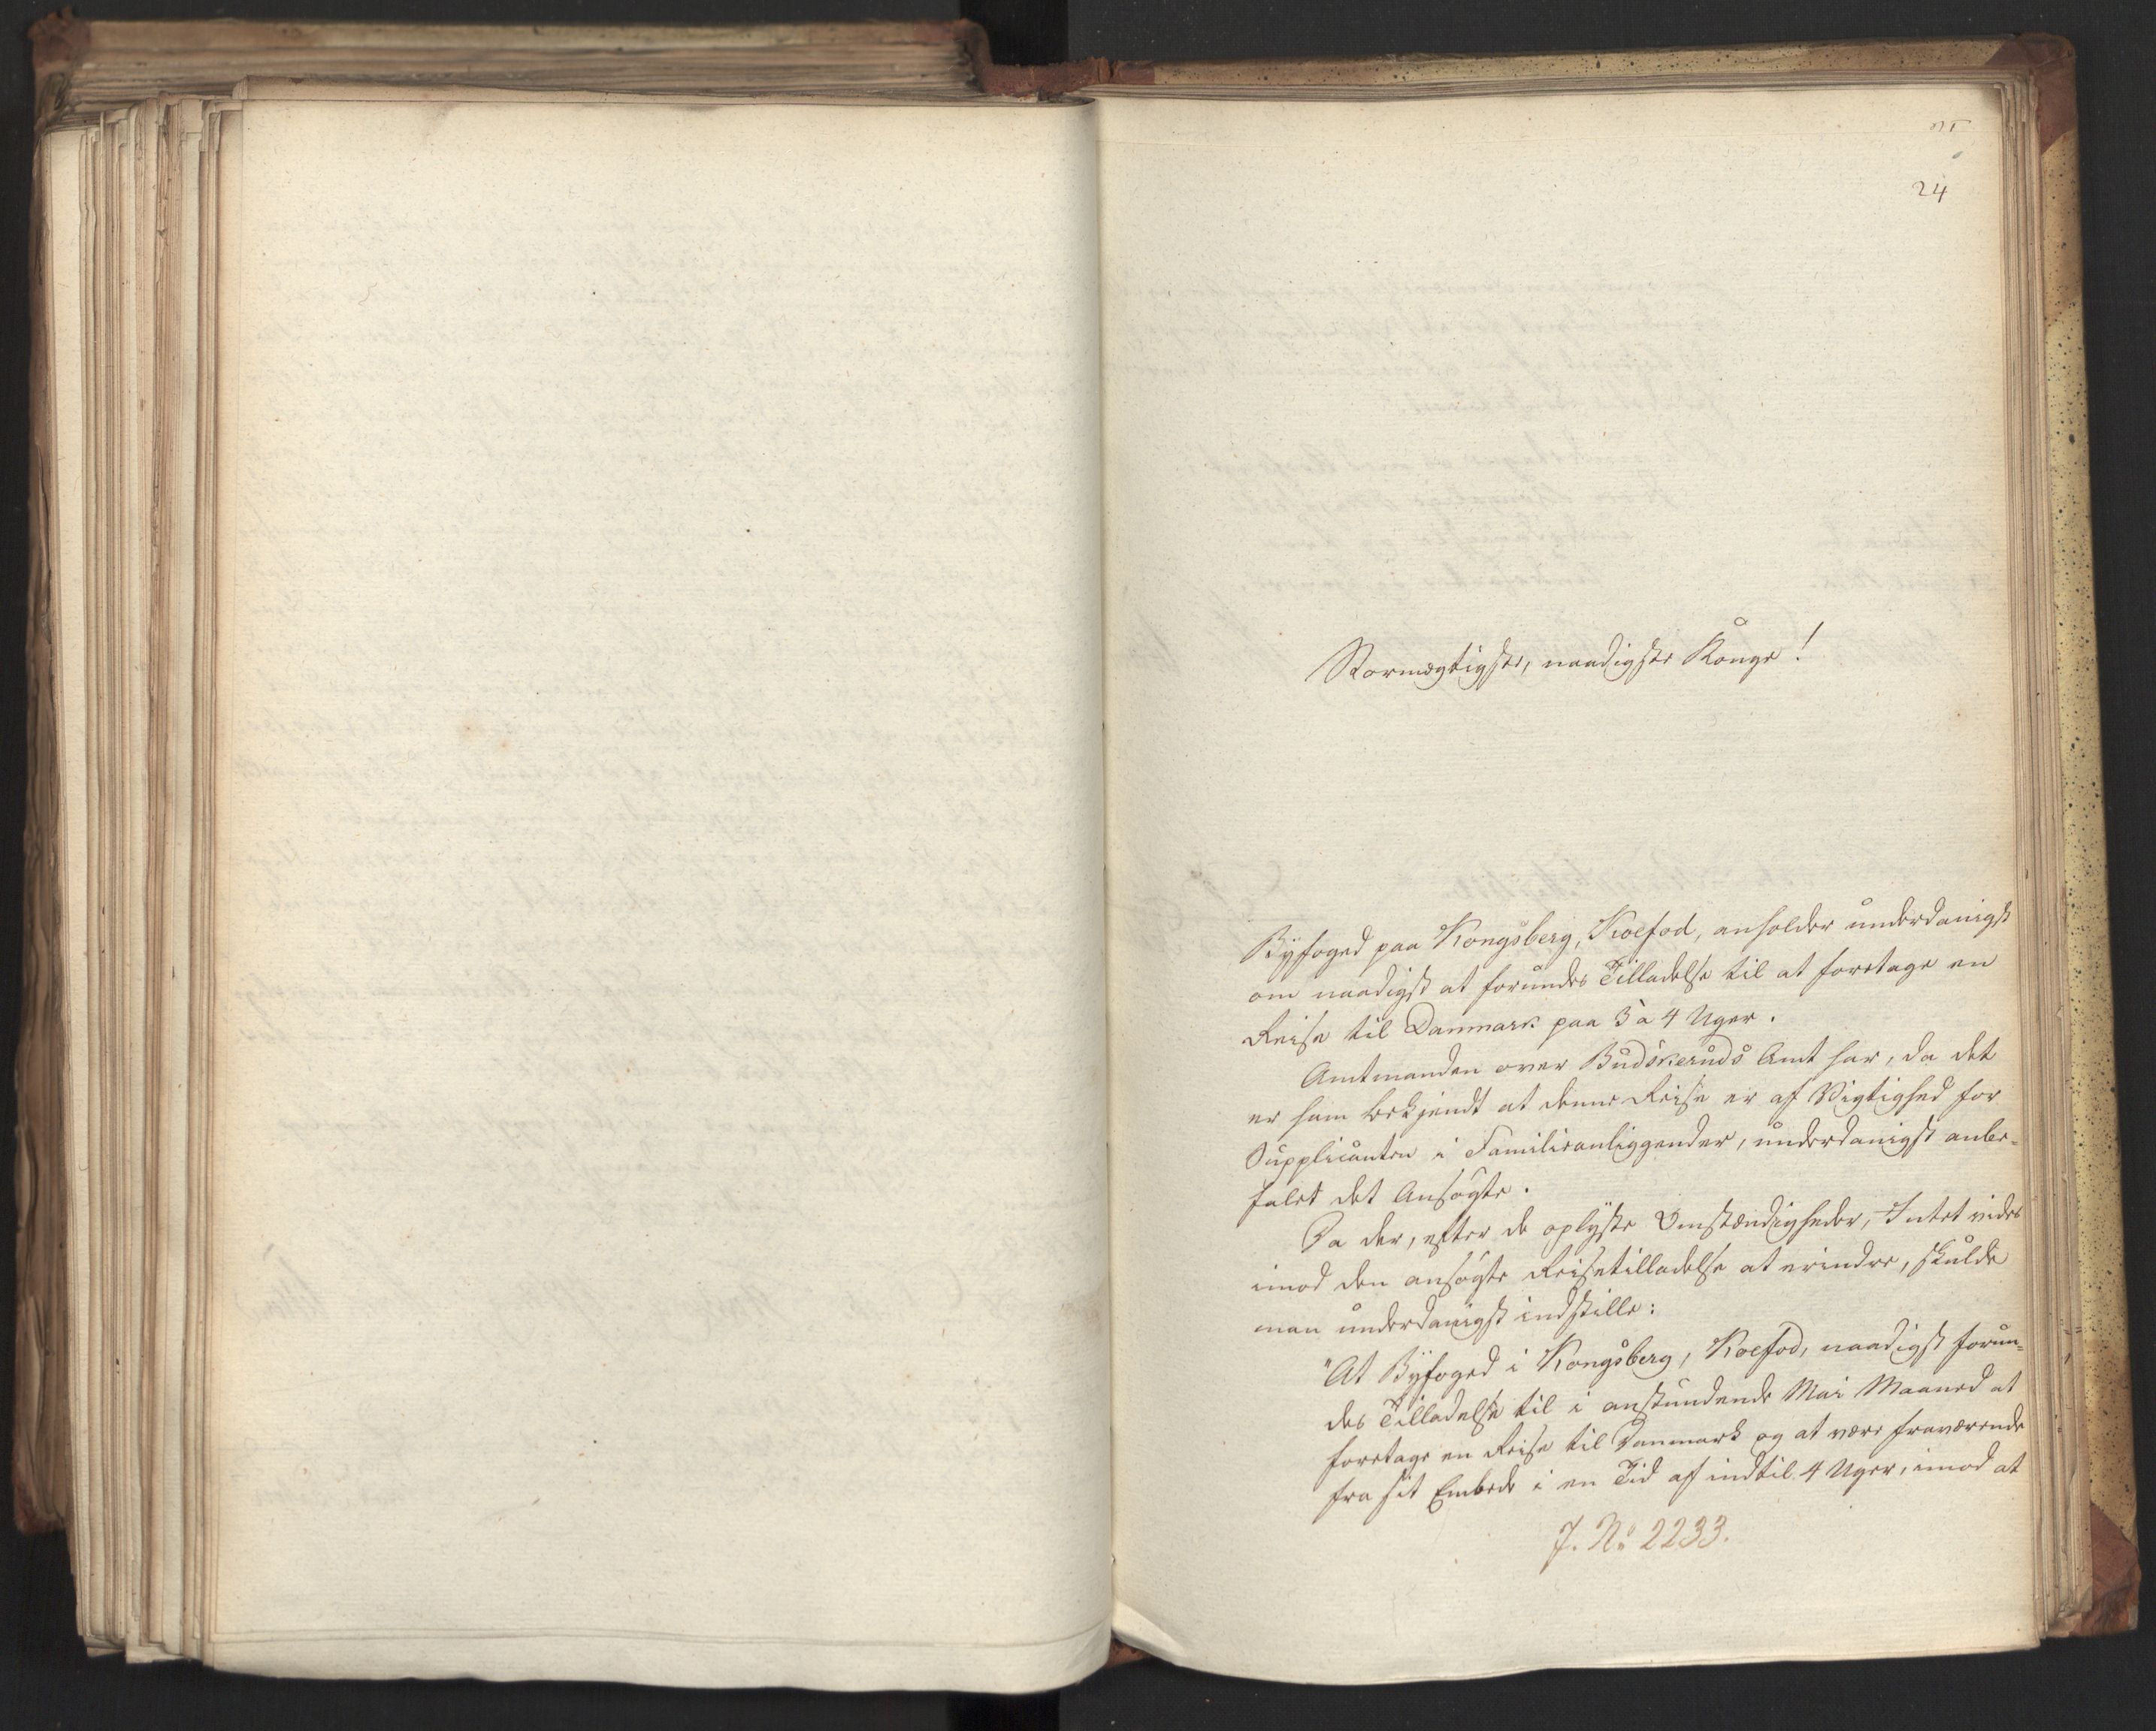 24
Stormægtigste, naadigste Konge!
Byfoged paa Kongsberg, Koefod, anholder underdanigst
om naadigst at forundes Tilladelse til at foretage en
Reise til Danmark paa 3 à 4 Uger.
Amtmanden over Budskeruds Amt har, da det
er ham bekjendt at denne Reise er af Vigtighed for
Supplicanten i Familieanliggender, underdanigst anbe-
falet det Ansøgte.
Da der, efter de oplyste Omstændigheder, Intet vides
imod den ansøgte Reisetilladelse at erindre, skulde
man underdanigst indstille:
"At Byfoged i Kongsberg, Koefod, naadigst forun-
des Tilladelse til i anstundende Mai Maaned at
foretage en Reise til Danmark og at være fraværende
fra sit Embede i en Tid af indtil 4 Uger, imod at
J. No 2233.